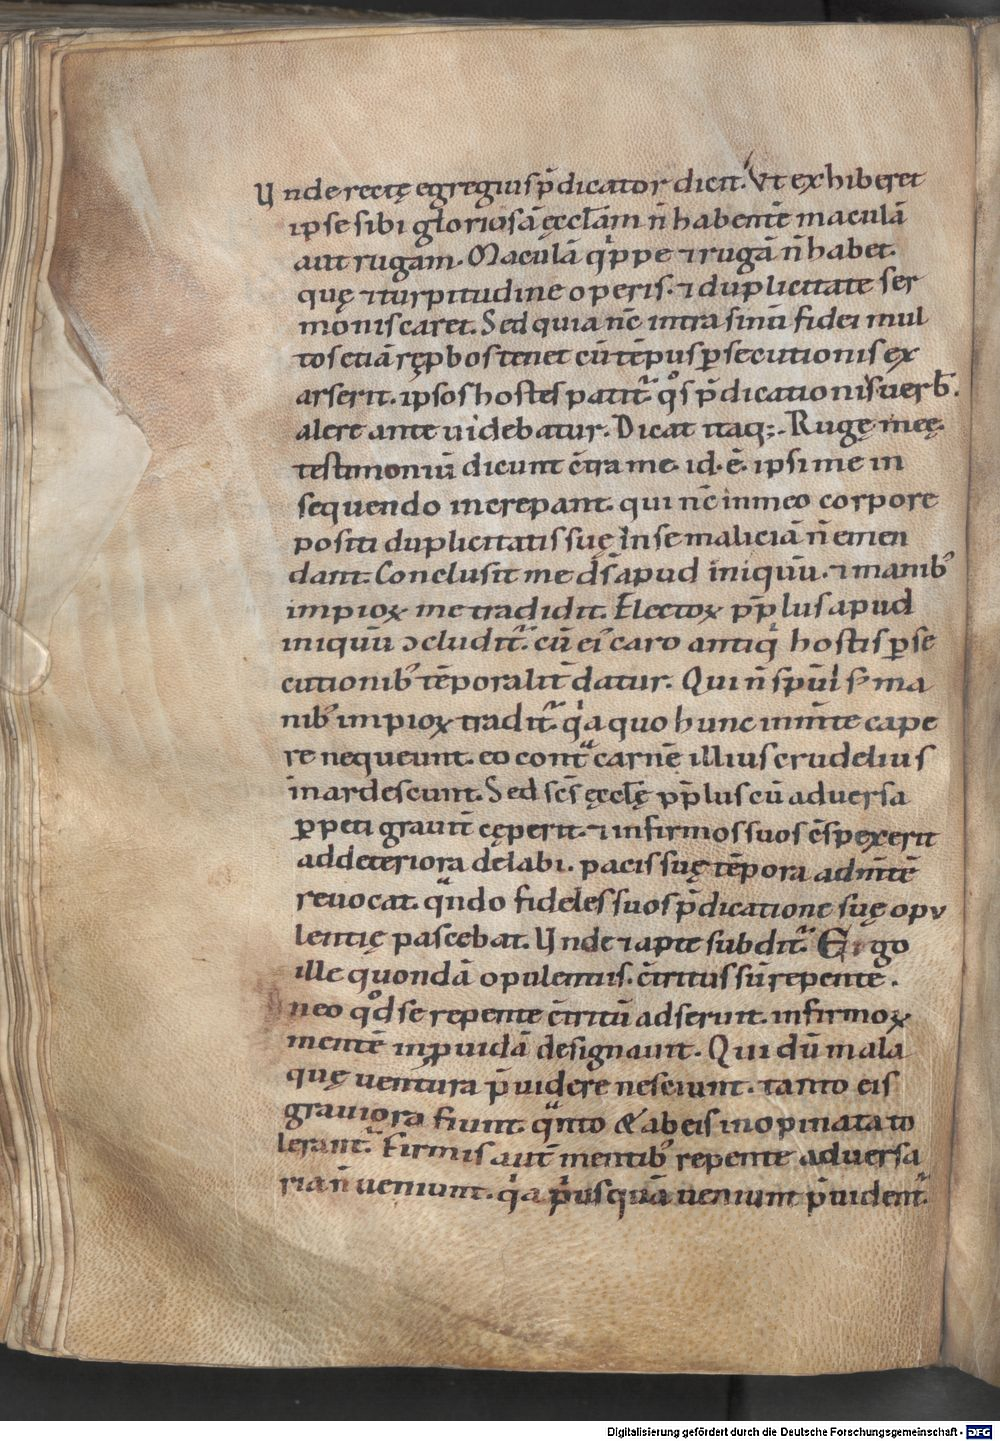 Unde rectę egregius p̄dicator dicit. Ut exhiberet
ipse sibi gloriosā ęccl̄am n̄ habentē maculā
aut rugam. Maculā qͥppe ⁊ rugā n̄ habet.
quę ⁊ turpitudine operis. ⁊ duplicitate ser
monis caret. Sed quia nc̄ intra sinū fidei mul
tos etiā rępbos tenet cū tēpus ꝑsecutionis ex
arserit. ipsos hostes patit᷑ qͦs p̄dicationis verb̄.
alere ante uidebatur. Dicat itaq;. Rugę meę
testimoniū dicunt c̄tra me. id. ē. ipsi me in
sequendo increpant. qui nc̄ in meo corpore
positi duplicitatis suę in se maliciā n̄ emen
dant. Conclusit me ds̄ apud iniquū. ⁊ manib᾽
impioꝝ me tradidit. Electoꝝ pp̄lus apud
iniquū ↄcludit᷑. cū ei᾽ caro antiqͥ hostis ꝑse
cutionib᾽ tēporalit̄ datur. Qui n̄ sp̄ui s; ma
nib᾽ impioꝝ tradit᷑. qͥa quo hunc in m̄te cape
re nequeunt. eo contͣ carnē illius crudelius
inardescunt. Sed scs̄ ęccl̄ę pp̄lus cū adversa
ꝑpeti grauit̄ cęperit. ⁊ infirmos suos c̄spexerit
ad deteriora delabi. pacis suę tēpora ad m̄tē
revocat. qͣndo fideles suos p̄dicatione suę opu
lentię pascebat. Unde ⁊ apte subdit᷑. Ergo
ille quondā opulentus. c̄tritus sū repente.
In eo qͦd se repente c̄tritū adserit. infirmoꝝ
mentē inꝓuidā designauit. Qui dū mala
quę ventura p̄uidere nesciunt. tanto eis
graviora fiunt. qͣnto & ab eis inopinata to
lerant᷑. Firmis aut̄ mentib᾽ repente adversa
ria n̄ veniunt. qͥa pͥusquā veniunt p̄uident᷑.
Digitalisierung gefördert durch die Deutsche Forschungsgemeinschaft - DFG